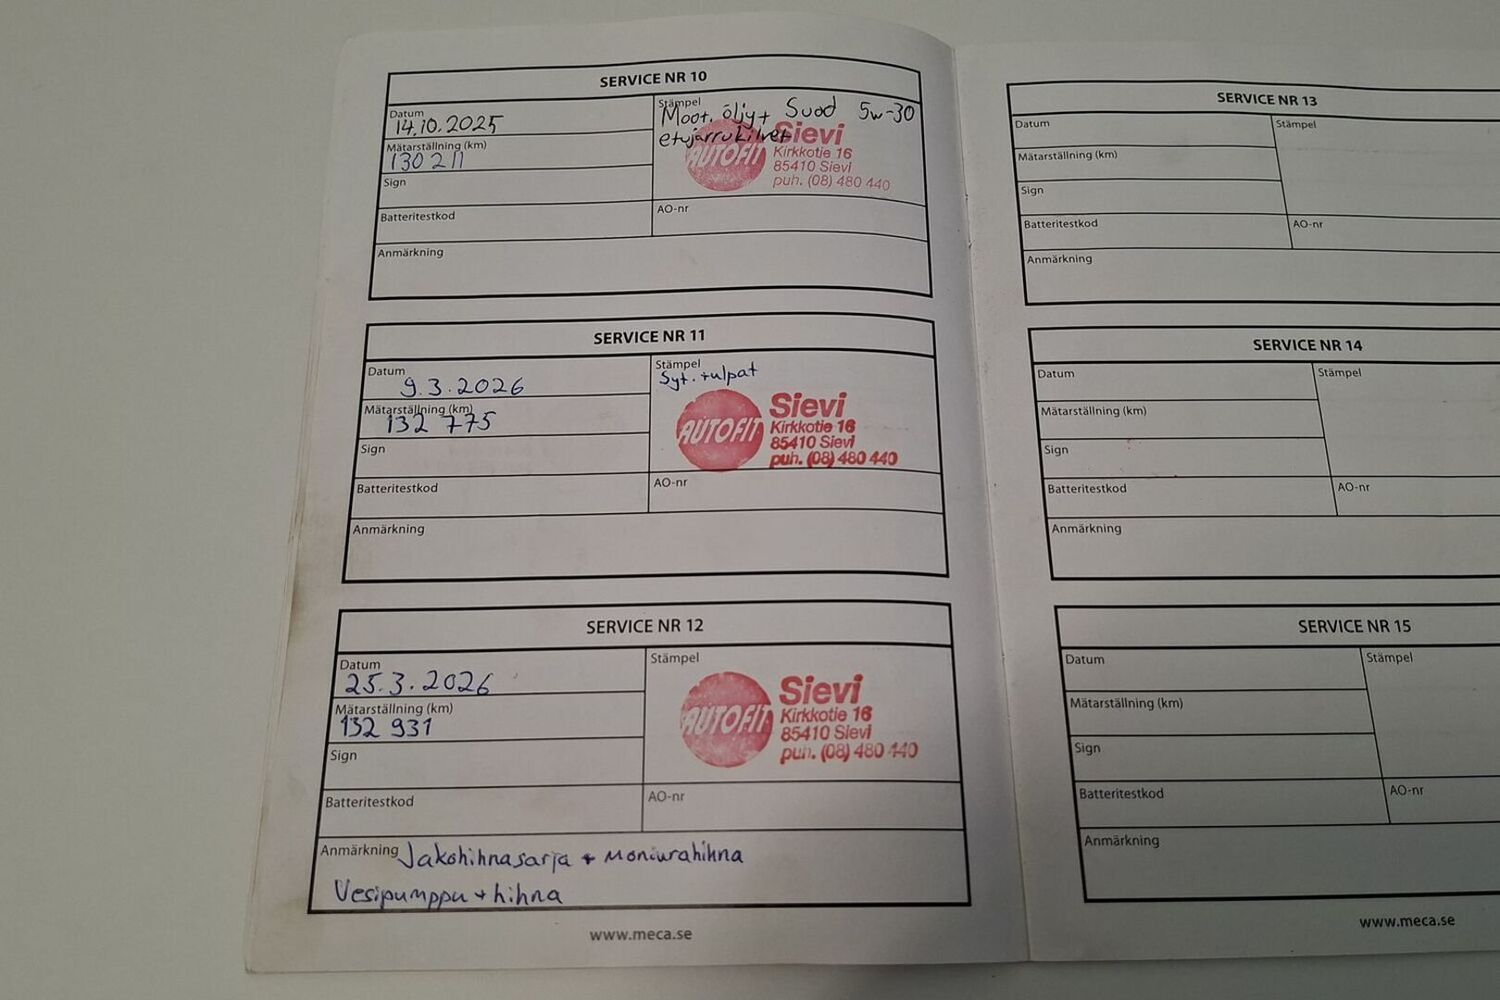 SERVICE NR 10
Datum
14.10.2025
Stämpel
Moot. öljy + Suod 5w-30
etujarrukilvet
Mätarställning (km)
130 211
AUTOFIT
Sievi
Kirkkotie 16
85410 Sievi
puh. (08) 480 440
Sign
Batteritestkod
AO-nr
Anmärkning
SERVICE NR 11
Datum
9.3.2026
Stämpel
Syt. tulpat
Mätarställning (km)
132 775
AUTOFIT
Sievi
Kirkkotie 16
85410 Sievi
puh. (08) 480 440
Sign
Batteritestkod
AO-nr
Anmärkning
SERVICE NR 12
Datum
25.3.2026
Stämpel
Mätarställning (km)
132 931
AUTOFIT
Sievi
Kirkkotie 16
85410 Sievi
puh. (08) 480 440
Sign
Batteritestkod
AO-nr
Anmärkning Jakohihnasarja + moniurahihna
Vesipumppu + hihna
www.meca.se
SERVICE NR 13
Datum
Stämpel
Mätarställning (km)
Sign
Batteritestkod
AO-nr
Anmärkning
SERVICE NR 14
Datum
Stämpel
Mätarställning (km)
Sign
Batteritestkod
AO-nr
Anmärkning
SERVICE NR 15
Datum
Stämpel
Mätarställning (km)
Sign
Batteritestkod
AO-nr
Anmärkning
www.meca.se